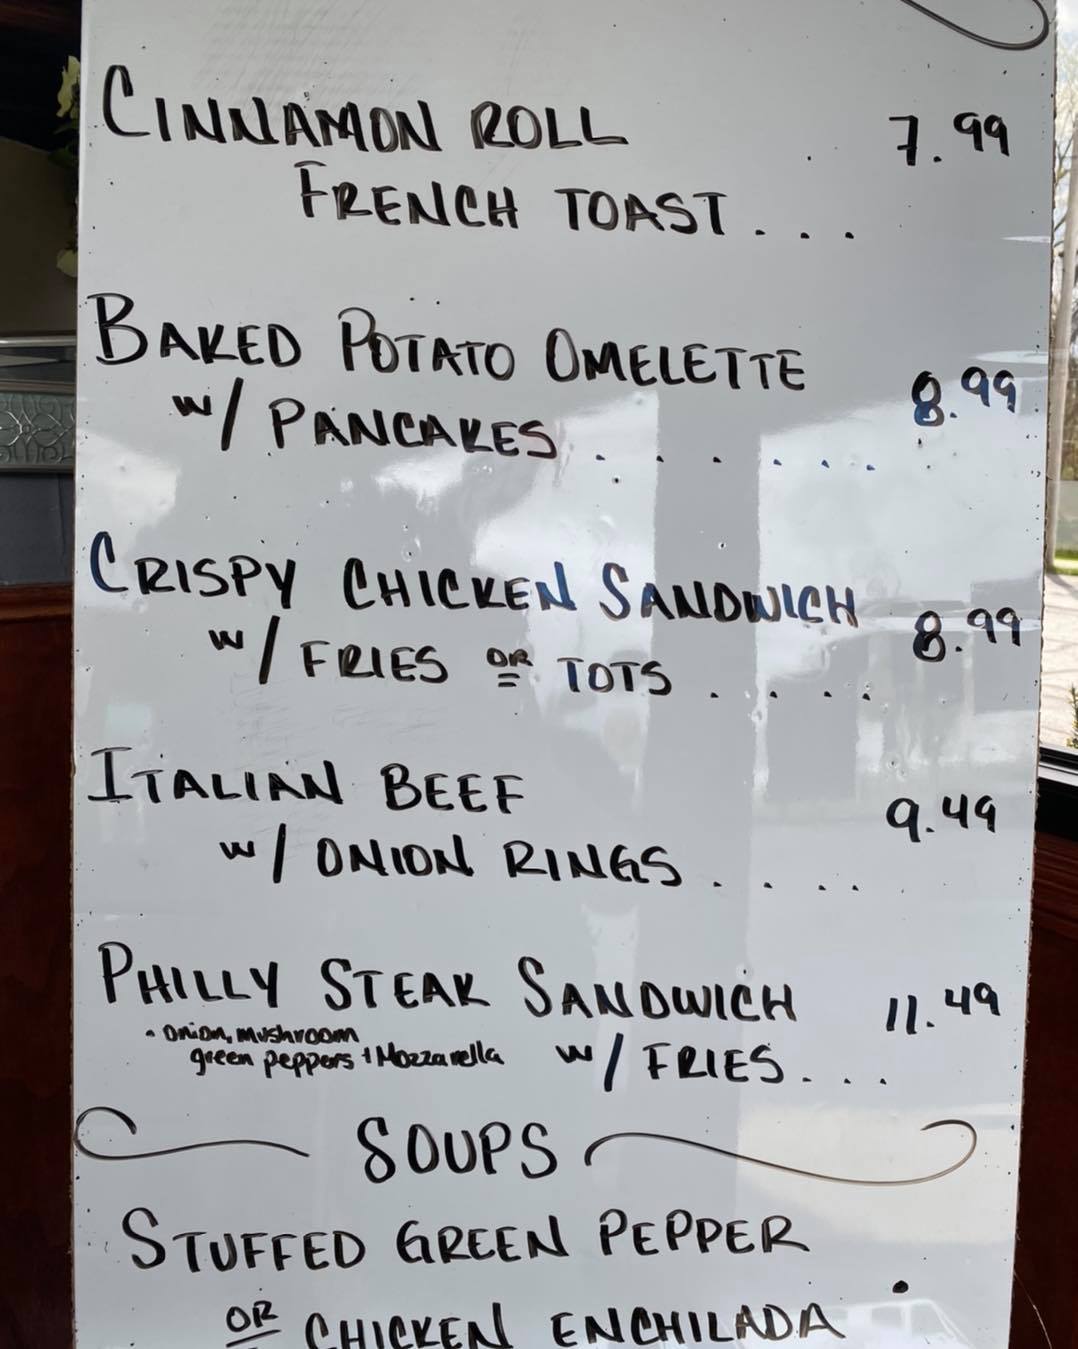 CINNAMON ROLL
FRENCH TOAST . . . 7.99
BAKED POTATO OMELETTE
w/ PANCAKES . . . . . . 8.99
CRISPY CHICKEN SANDWICH
w/ FRIES OR TOTS . . . . 8.99
ITALIAN BEEF
w/ ONION RINGS . . . . 9.49
PHILLY STEAK SANDWICH 11.49
• Onion, Mushroom
green peppers + Mozzarella w/ FRIES . . .
SOUPS
STUFFED GREEN PEPPER
OR CHICKEN ENCHILADA